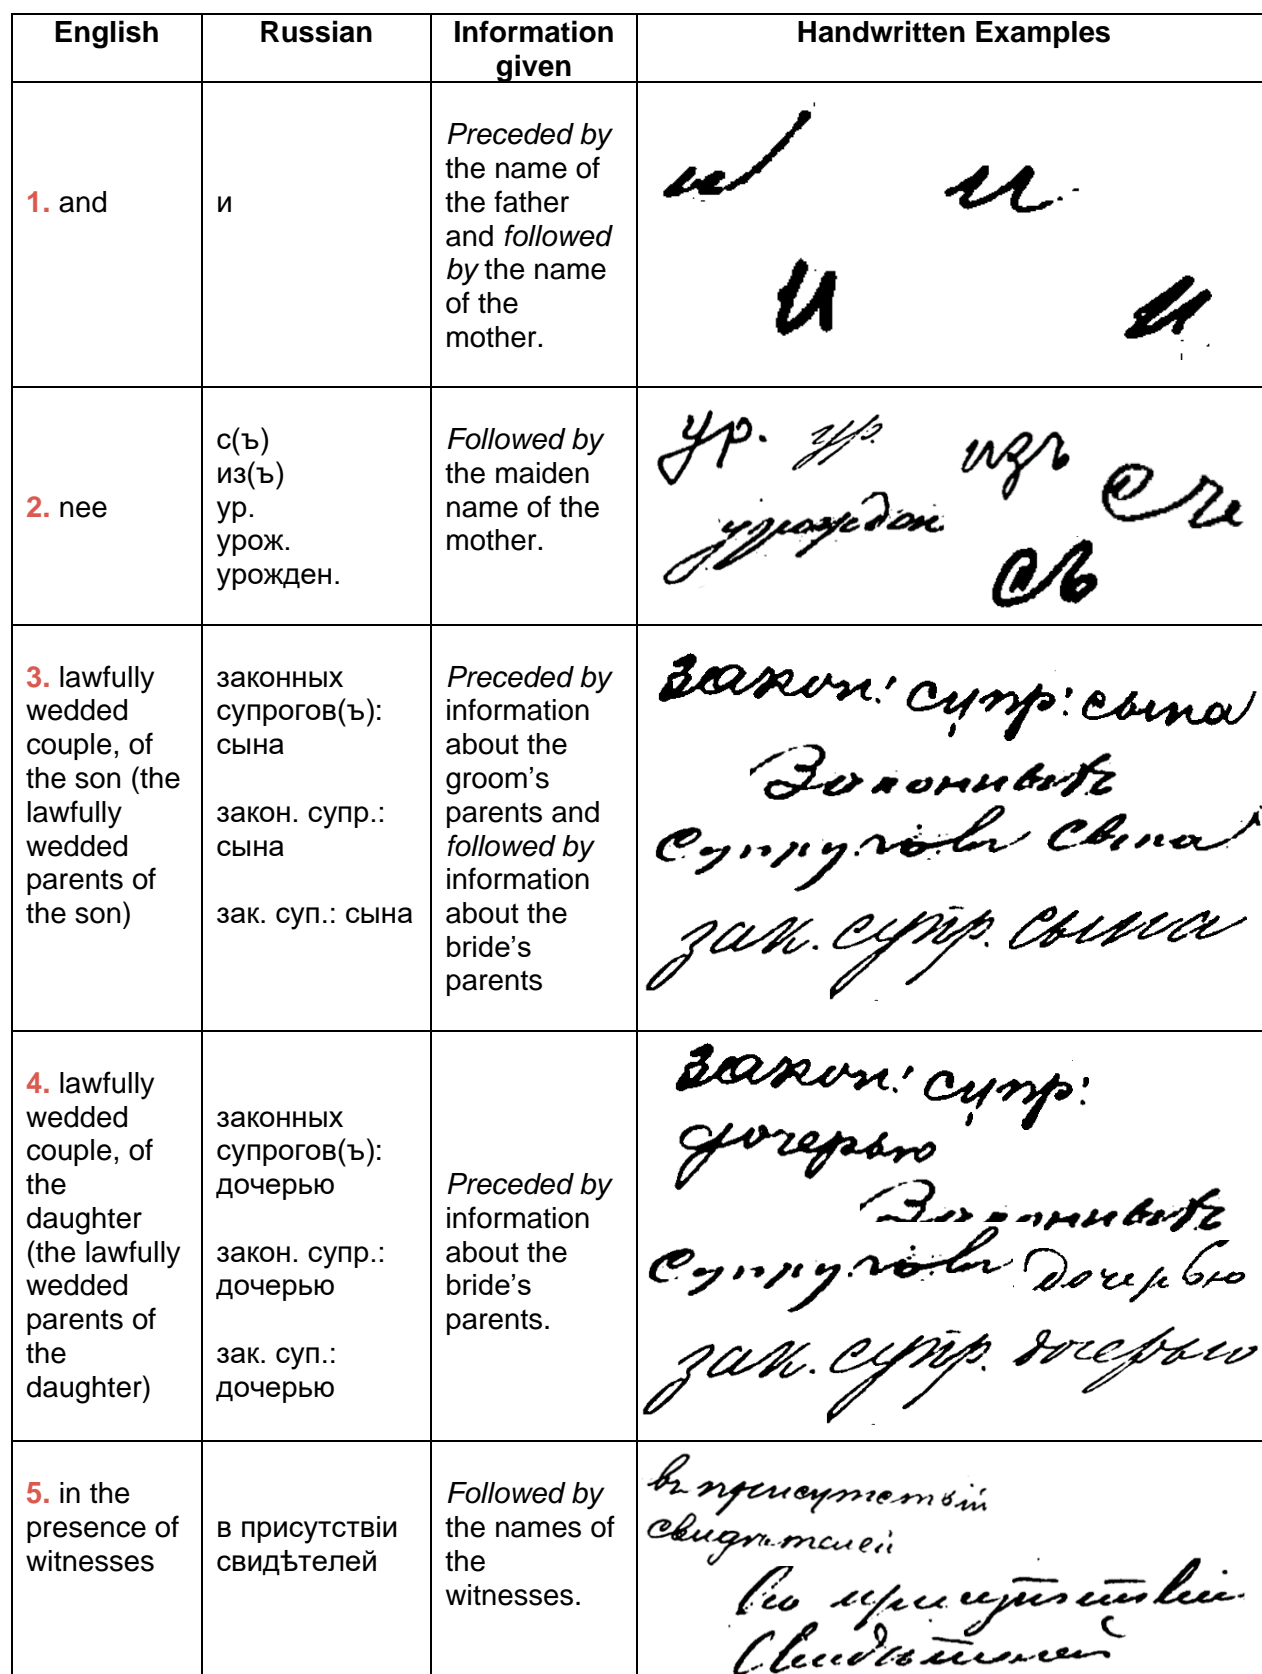 English Russian Information given Handwritten Examples
1. and
и
Preceded by
the name of
the father
and followed
by the name
of the
mother.
и и
и и
2. nee
с(ъ)
из(ъ)
ур.
урож.
урожден.
Followed by
the maiden
name of the
mother.
ур. ур. изъ съ
урожден съ
3. lawfully
wedded
couple, of
the son (the
lawfully
wedded
parents of
the son)
законных
супрогов(ъ):
сына
закон. супр.:
сына
зак. суп.: сына
Preceded by
information
about the
groom’s
parents and
followed by
information
about the
bride’s
parents
закон: супр: сына
Законныхъ
Супруговъ Сына
зак. супр. сына
4. lawfully
wedded
couple, of
the
daughter
(the lawfully
wedded
parents of
the
daughter)
законных
супрогов(ъ):
дочерью
закон. супр.:
дочерью
зак. суп.:
дочерью
Preceded by
information
about the
bride’s
parents.
закон: супр:
дочерью
Законныхъ
Супруговъ дочерью
зак. супр. дочерью
5. in the
presence of
witnesses
в присутствіи
свидѣтелей
Followed by
the names of
the
witnesses.
въ присутствіи
свидѣтелей
во присутствіи
Свидѣтелей